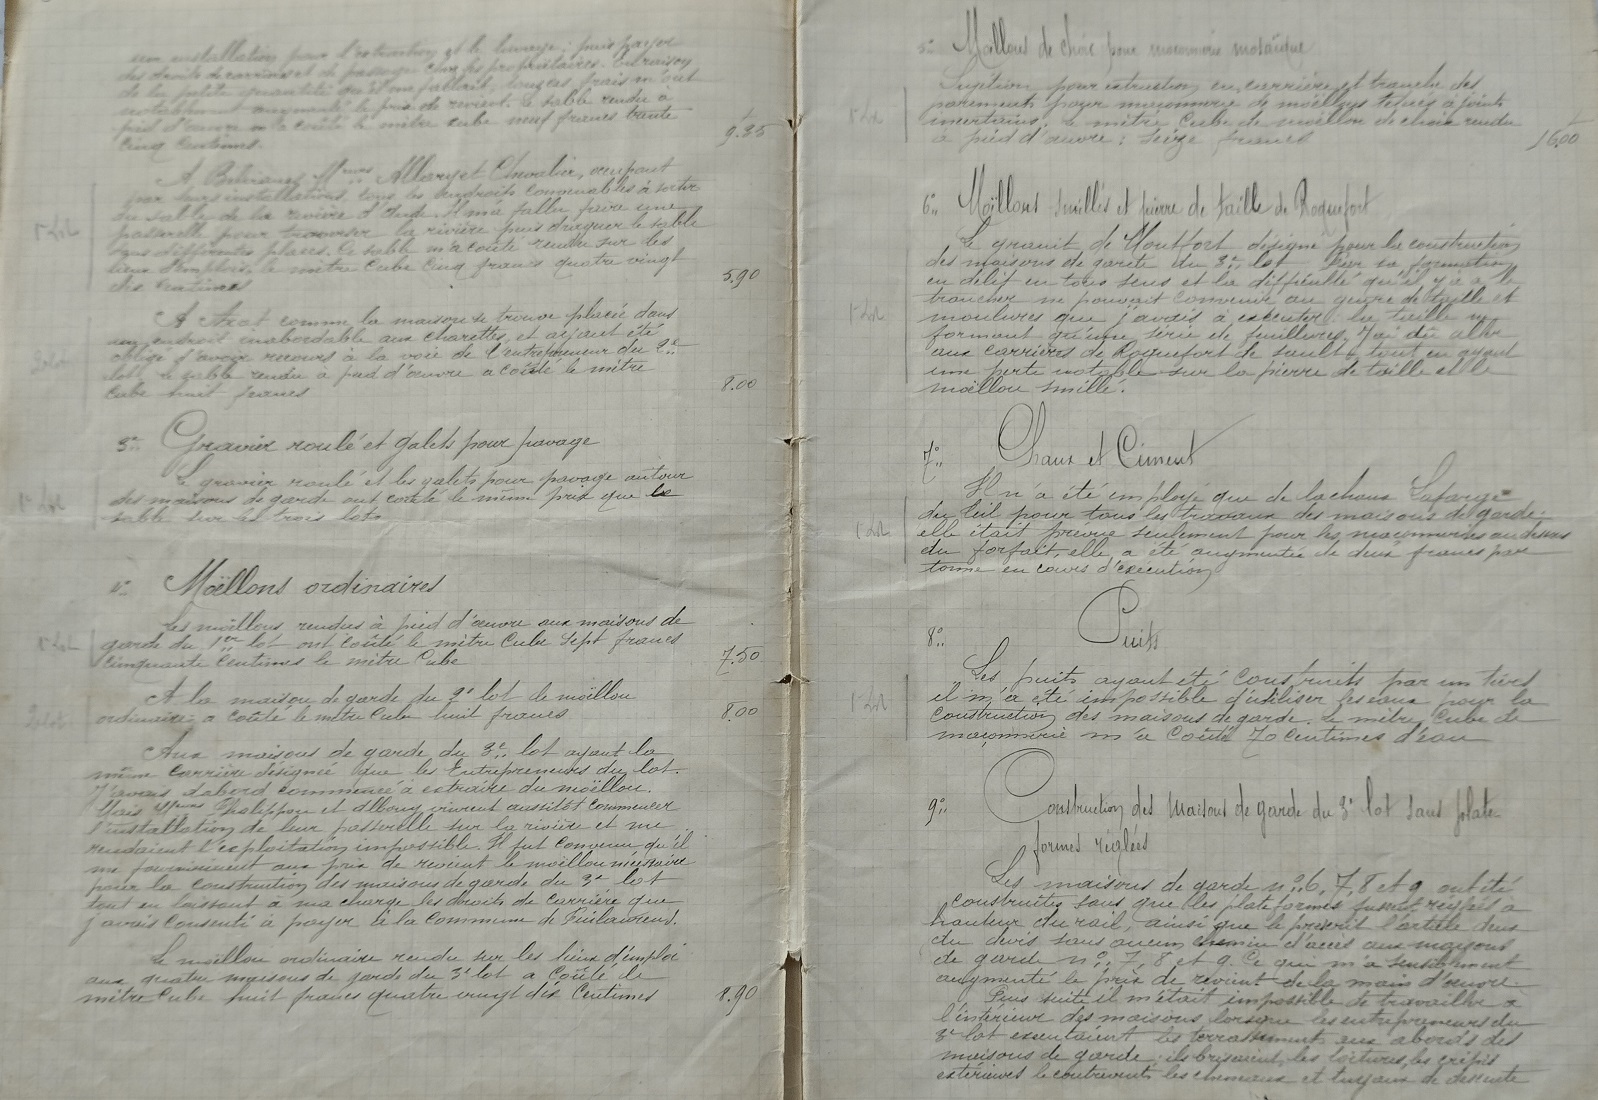 une installation pour l'extraction et le lavage; puis payer
des droits de carrière et de passage chez les propriétaires. En raison
de la petite quantité qu'il me fallait, tous ces frais m'ont
notablement augmenté le prix de revient. Le sable rendu à
pied d'œuvre m'a coûté le mètre cube neuf francs trente
cinq centimes. 9.35
A Belvianes Mrs Allary et Chevalier, occupant
par leurs installations, tous les endroits convenables à sortir
du sable de la rivière d'Aude. Il m'a fallu faire une
passerelle pour traverser la rivière puis draguer le sable
sous différentes places. Ce sable m'a coûté rendu sur les
lieux d'emplois, le mètre cube cinq francs quatre vingt
dix centimes 5.90
A Axat comme la maison se trouve placée dans
un endroit inabordable aux charettes, et ayant été
obligé d'avoir recours à la voie de l'entrepreneur du 2e
lot, le sable rendu à pied d'œuvre a coûté le mètre
cube huit francs 8.00
3° Gravier roulé et galets pour pavage
Le gravier roulé et les galets pour pavage autour
des maisons de garde ont coûté le même prix que le
sable sur les trois lots
4° Moëllons ordinaires
Les moëllons rendus à pied d'œuvre aux maisons de
garde du 1er lot ont coûté le mètre cube sept francs
cinquante centimes le mètre cube 7.50
A la maison de garde du 2e lot le moëllon
ordinaire a coûté le mètre cube huit francs 8.00
Aux maisons de garde du 3e lot ayant la
même carrière désignée que les Entrepreneurs du lot.
J'avais d'abord commencé à extraire du moëllon.
Mais Mrs Phalippou et Albouy vinrent aussitôt commencer
l'installation de leur passerelle sur la rivière et me
rendaient l'exploitation impossible. Il fut convenu qu'il
me fourniraient aux prix de revient le moëllon nécessaire
pour la construction des maisons de garde du 3e lot
tout en laissant à ma charge les droits de carrière que
j'avais consenti à payer à la Commune de Puilaurens.
Le moëllon ordinaire rendu sur les lieux d'emploi
aux quatre maisons de garde du 3e lot a coûté le
mètre cube huit francs quatre vingt dix centimes 8.90
5° Moëllons de choix pour maçonnerie mosaïque
Sujétion pour extraction en carrière et tranche des
parements pour maçonnerie de moëllons têtués à joints
incertains, le mètre cube de moëllon de choix rendu
à pied d'œuvre: seize francs 16.00
1er Lot
6° Moëllons smillés et pierre de taille de Roquefort
Le granit de Montfort désigné pour la construction
des maisons de garde du 3e lot par sa formation
en délit en tous sens et la difficulté qu'il y a à le
trancher ne pouvait convenir au genre de taille et
moulures que j'avais à exécuter: la taille ne
formant qu'une série de feuillures. J'ai dû aller
aux carrières de Roquefort de Sault, tout en ayant
une perte notable sur la pierre de taille et le
moëllon smillé.
7° Chaux et Ciment
Il n'a été employé que de la chaux Lafarge
du Teil pour tous les travaux des maisons de garde;
elle était prévue seulement pour les maçonneries au dessus
du forfait, elle a été augmentée de deux francs par
tonne en cours d'exécution
8° Puits
Les puits ayant été construits par un tiers
il m'a été impossible d'utiliser ses eaux pour la
construction des maisons de garde. Le mètre cube de
maçonnerie m'a coûté 70 centimes d'eau
9° Construction des maisons de garde du 3e lot sans plate
formes réglées
Les maisons de garde nos 6, 7, 8 et 9 ont été
construites sans que les plateformes fussent réglées à
hauteur du rail, ainsi que le prescrit l'article deux
du devis sans aucun chemin d'accès aux maisons
de garde nos 7, 8 et 9. Ce qui m'a sensiblement
augmenté le prix de revient de la main d'œuvre.
Puis suite il m'était impossible de travailler à
l'intérieur des maisons lorsque les entrepreneurs du
3e lot exécutaient les terrassements aux abords des
maisons de garde; ils brisaient les toitures, les crépis
extérieurs le contrevents les cheneaux et tuyaux de descente